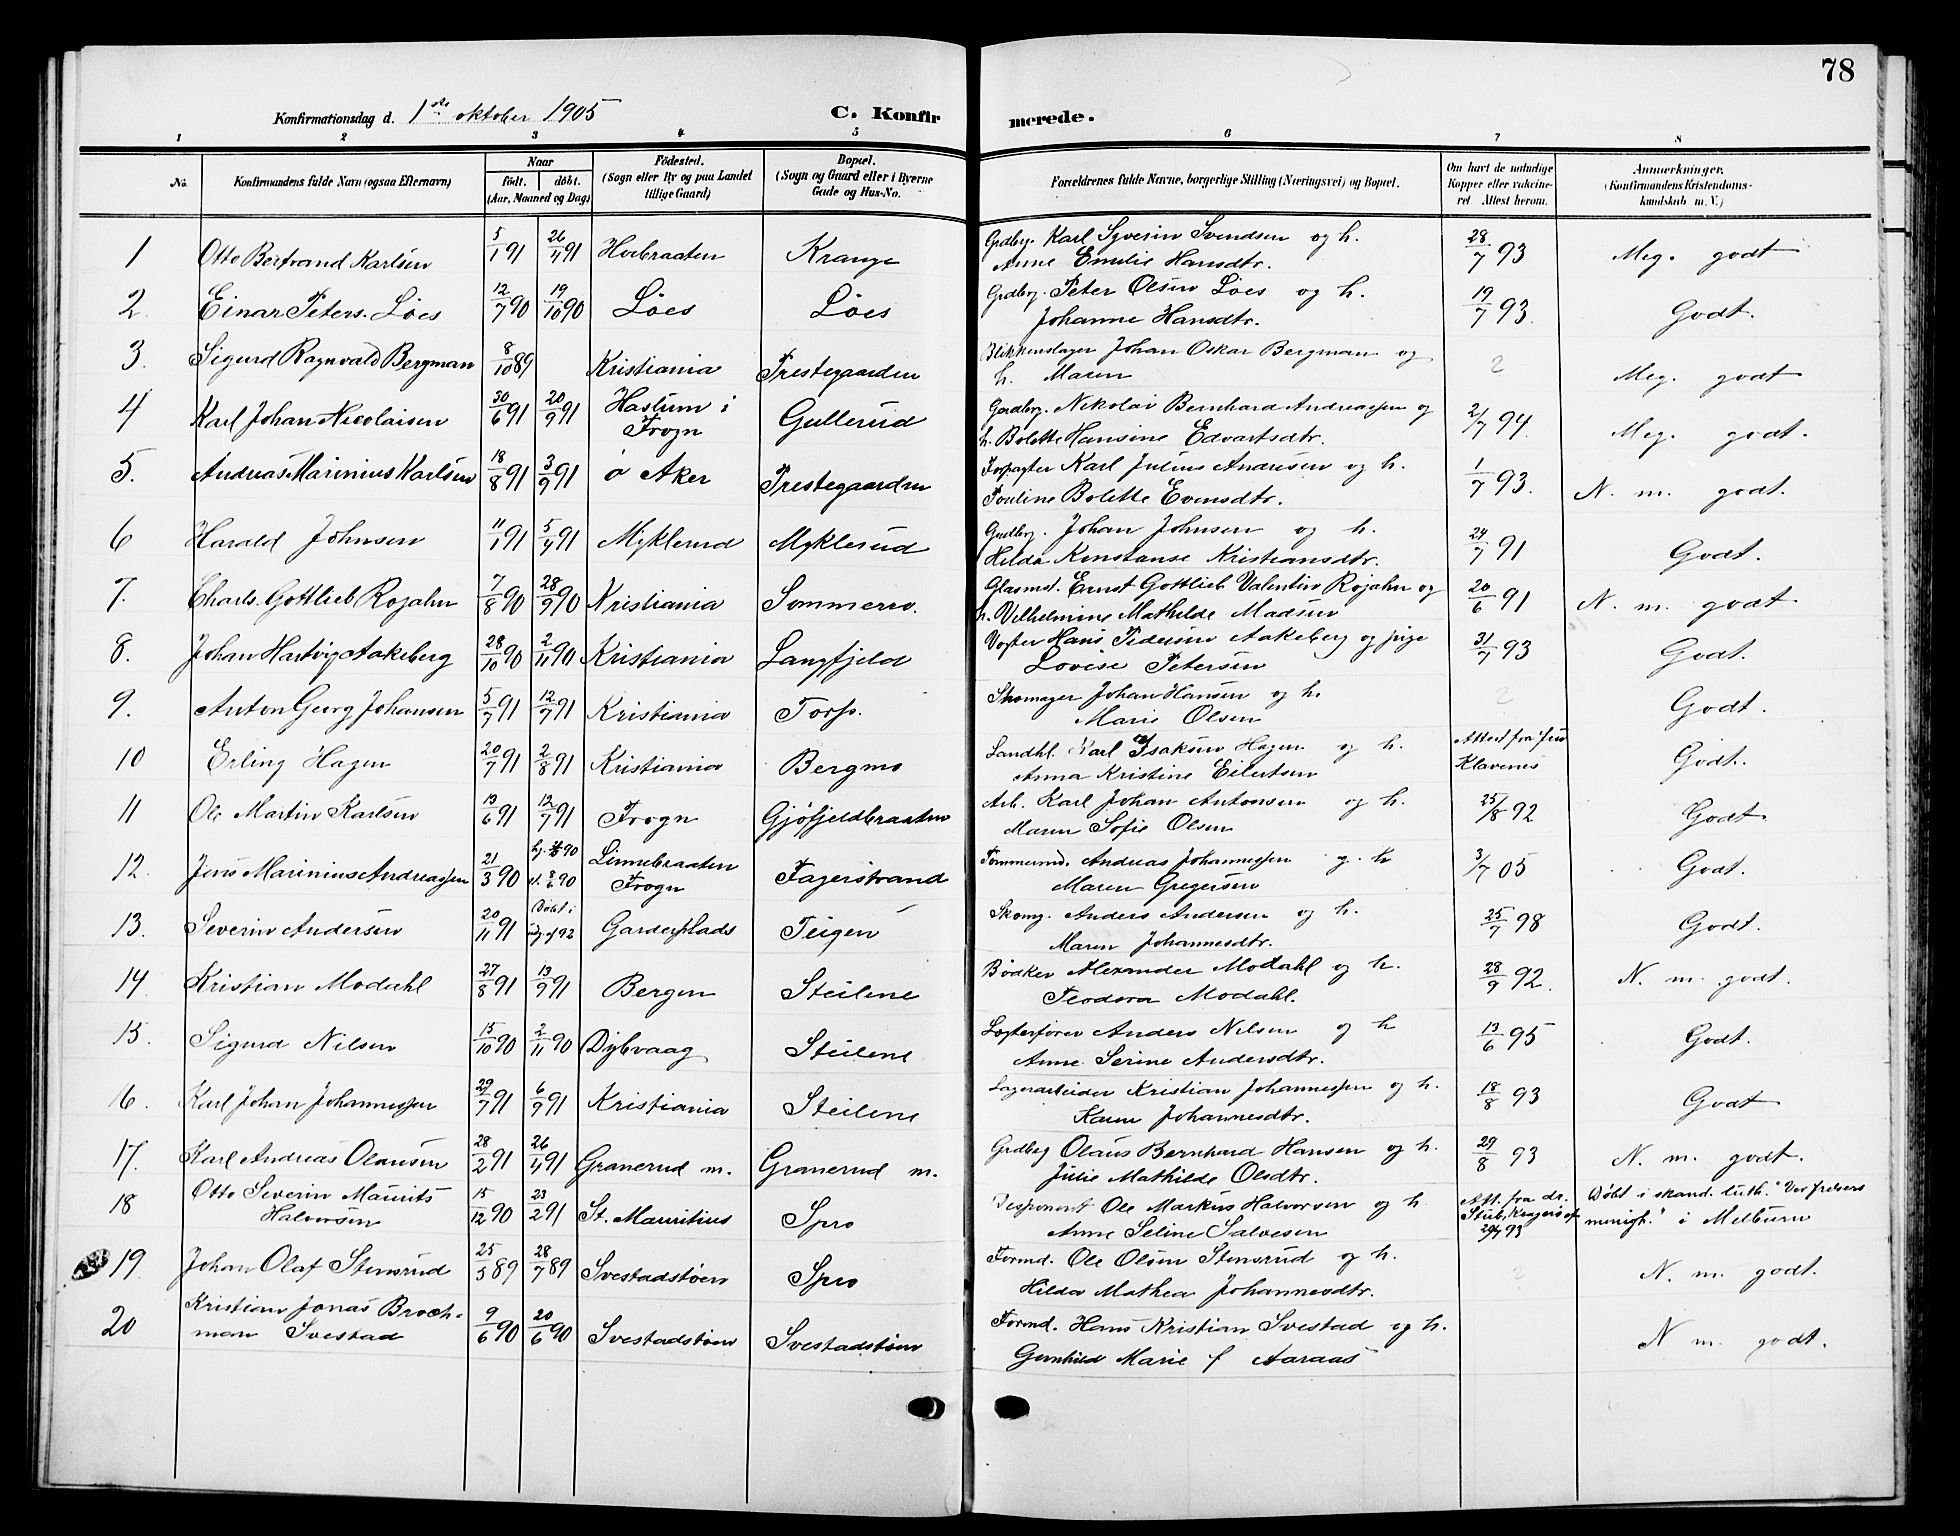 78
Konfirmationsdag d. 1ste oktober 1905 C. Konfirmerede.
1 2 3 4 5 6 7 8
No. Konfirmandens fulde Navn (ogsaa Efternavn) Naar født. døbt. (Aar, Maaned og Dag) Fødested. (Sogn eller By og paa Landet tillige Gaard) Bopæl. (Sogn og Gaard eller i Byerne Gade og Hus-No. Forældrenes fulde Navne, borgerlige Stilling (Næringsvei) og Bopæl. Om havt de naturlige Kopper eller vakcineret. Attest herom. Anmærkninger. (Konfirmandens Kristendomskundskab m. V.)
1 Otto Bertrand Karlsen 5/1 91 26/4 91 Hvebraaten Krange Grdbrg. Karl Syverin Svendsen og h. Anne Emilie Hansdtr. 28/7 93 Meg. godt
2. Einar Peters. Löes 12/7 90 19/10 90 Löes Löes Grdbrg. Peter Olsen Löes og h. Johanne Hansdtr. 19/7 93. Godt.
3. Sigurd Ragnvald Bergman 8/10 89 Kristiania Prestegaarden Blikkenslager Johan Oskar Bergman og h. Maren ? Meg. godt
4 Karl Johan Nicolaisen 30/6 91 20/9 91 Haslum i Frogn Gullerud Gardbrg. Nikolai Bernhard Andreassen og h. Bolette Hansine Edvartsdtr. 2/7 94. Meg. godt.
5. Andreas Marinius Karlsen 18/8 91 3/9 91 ø Aker Prestegaarden Forpagter Karl Julius Andresen og h. Pauline Bolette Evensdtr. 1/7 93. N. m. godt.
6 Harald Johnsen 11/1 91 5/4 91 Myklerud Myklerud Grdbrg. Johan Johnsen og h. Hilda Konstanse Kristiansdtr. 24/7 91 Godt.
7. Charls. Gottlieb Rojahn 7/8 90 28/9 90 Kristiania Sommerro. Glasmst. Ernst Gottlieb Valentin Rojahn og h. Vilhelmine Mathilde Madsen 20/6 91 N. m. godt
8. Johan Hartvig Aakeberg 28/10 90 2/11 90 Kristiania Langfjeld Vogter Hans Pedersen Aakeberg og pige Lovise Petersen 31/7 93 Godt.
9. Anton Georg Johansen 5/7 91 12/7 91 Kristiania Torp. Skomager Johan Hansen og h. Marie Olsen ? Godt.
10 Erling Hagen 20/7 91 2/8 91 Kristiania Bergmo Landhl. Karl Isaksen Hagen og h. Anna Kristine Eilertsen Attest fra frü Klavenes Godt.
11 Ole Martin Karlsen 13/6 91 12/7 91 Frogn Gjöfjeldbraaten Arb. Karl Johan Antonsen og h. Maren Sofie Olsen 25/8 92 Godt
12. Jens Marinius Andreassen 21/3 90 90 8/6 90 Linnebraaten Frogn Fagerstrand Tømmermd. Andreas Johannessen og h Maren Gregersen 3/7 05 Godt.
13. Severin Andersen 20/11 91 Döbt i 92 Garderplads Teigen Skomg. Anders Andersen og h. Maren Johannesdtr. 25/7 98 Godt.
14 Kristian Modahl 27/8 91 13/9 91 Bergen Steilene Bødker Alexander Modahl og h. Teodora Modahl. 28/9 92. N. m. godt.
15. Sigurd Nilsen 15/10 90 2/11 90 Dybvaag Steilene Lægterfører Anders Nilsen og h Anne Serine Andersdtr. 13/6 95 Godt.
16. Karl Johan Johannessen 29/7 91 6/9 91 Kristiania Steilene Lagerarbeider Kristian Johannessen og h. Karen Johannesdtr. 18/8 93 Godt
17. Karl Andreas Olausen 28/2 91 26/4 91 Granerud m. Granerud m. Grdbrg Olaus Bernhard Hansen og h. Julie Mathilde Olsdtr. 29/8 93 N. m. godt.
18 Otto Severin Maurits Halvorsen 15/12 90 23/2 91 St. Mauritius Spro Disponent Ole Markus Halvorsen og h. Anne Seline Salvesen Att. fra dr. Stub, Kragerö af 93 Döbt i skand. luth. "Vor frelsers menigh." i Melburn
19. Johan Olaf Stensrud 25/5 89 28/7 89 Svestadstöen Spro Formd. Ole Olsen Stensrud og h. Hilda Mathea Johannesdtr. ? N. m. godt.
20 Kristian Jonas Brochman Svestad 9/6 90 20/6 90 Svestadstöen Svestadstöen Formd. Hans Kristian Svestad og h. Gunhild Marie f Aaraas N m. godt.